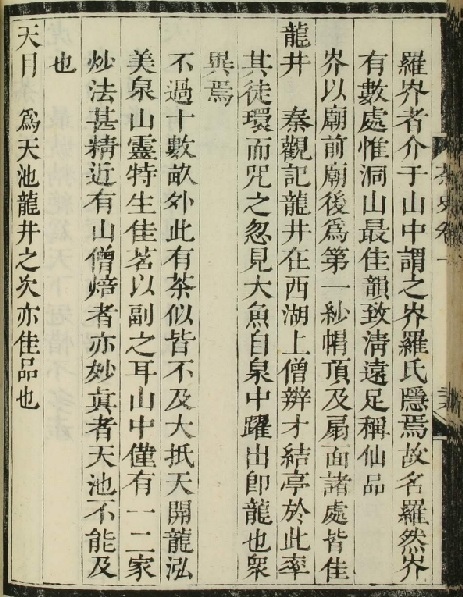 茶史卷一
羅岕者介于山中謂之岕羅氏隱焉故名羅然岕
有數處惟洞山最佳韻致清遠足稱仙品
岕以廟前廟後爲第一紗帽頂及扇面諸處皆佳
龍井　秦觀記龍井在西湖上僧辨才結亭於此率
其徒環而咒之忽見大魚自泉中躍出卽龍也衆
異焉
不過十數畝外此有茶似皆不及大抵天開龍泓
美泉山靈特生佳茗以副之耳山中僅有一二家
炒法甚精近有山僧焙者亦妙真者天池不能及
也
天目　爲天池龍井之次亦佳品也